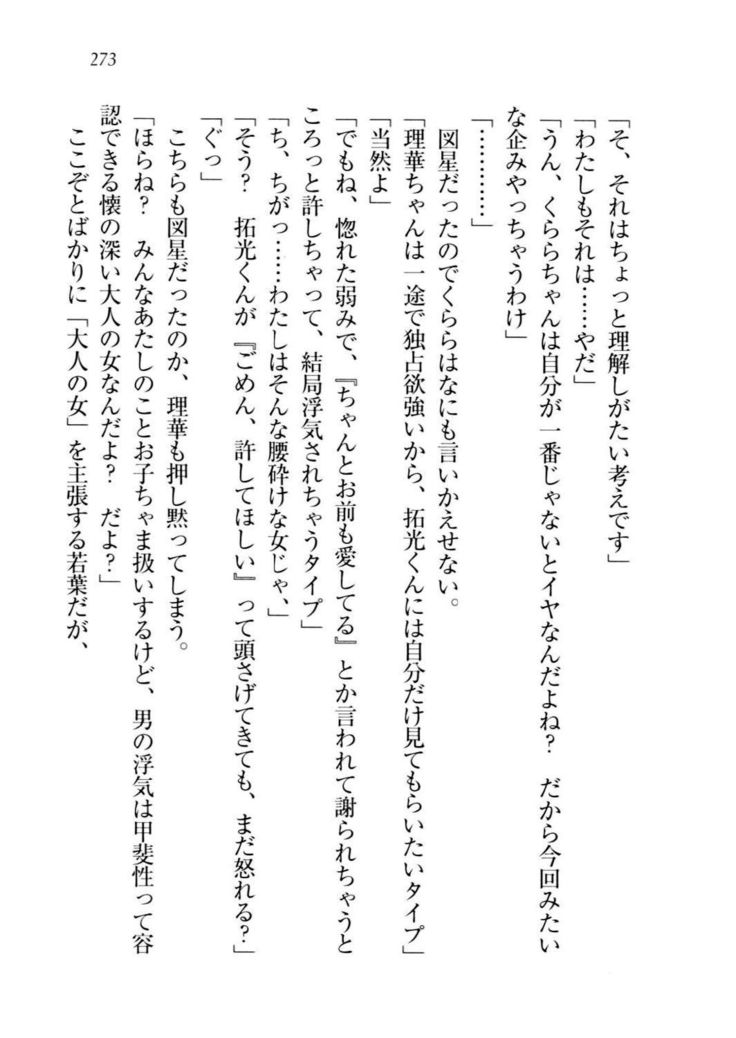 273
「そ、それはちょっと理解しがたい考えです」
「わたしもそれは……やだ」
「うん、くららちゃんは自分が一番じゃないとイヤなんだよね？　だから今回みたい
な企みやっちゃうわけ」
「…………」
　図星だったのでくららはなにも言いかえせない。
「理華ちゃんは一途で独占欲強いから、拓光くんには自分だけ見てもらいたいタイプ」
「当然よ」
「でもね、惚れた弱みで、『ちゃんとお前も愛してる』とか言われて謝られちゃうと
ころっと許しちゃって、結局浮気されちゃうタイプ」
「ち、ちがっ……わたしはそんな腰砕けな女じゃ、」
「そう？　拓光くんが『ごめん、許してほしい』って頭さげてきても、まだ怒れる？」
「ぐっ」
　こちらも図星だったのか、理華も押し黙ってしまう。
「ほらね？　みんなあたしのことお子ちゃま扱いするけど、男の浮気は甲斐性って容
認できる懐の深い大人の女なんだよ？　だよ？」
　ここぞとばかりに「大人の女」を主張する若葉だが、